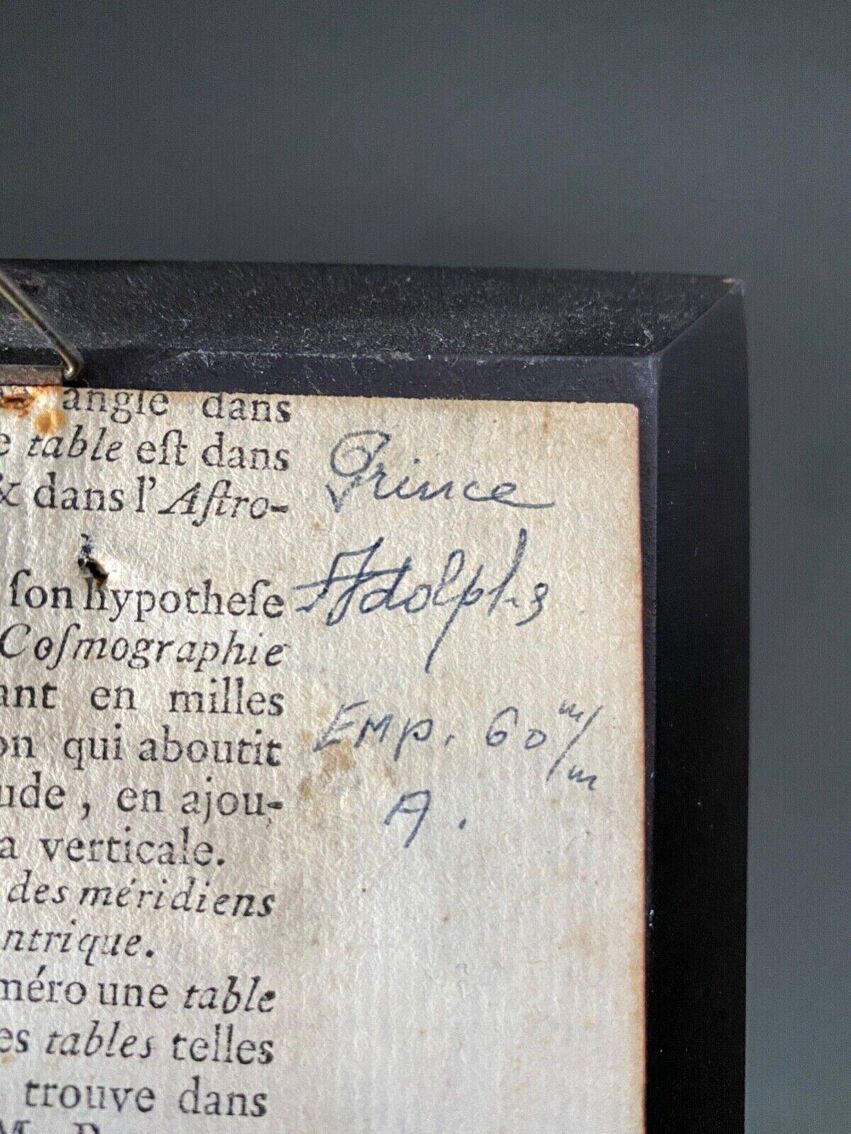 angle dans
e table eſt dans
& dans l'Aſtro-
ſon hypotheſe
Coſmographie
ant en milles
on qui aboutit
ude, en ajou-
a verticale.
des méridiens
ntrique.
méro une table
es tables telles
trouve dans
Prince
Adolphe
Emp. 60 m/m
A.